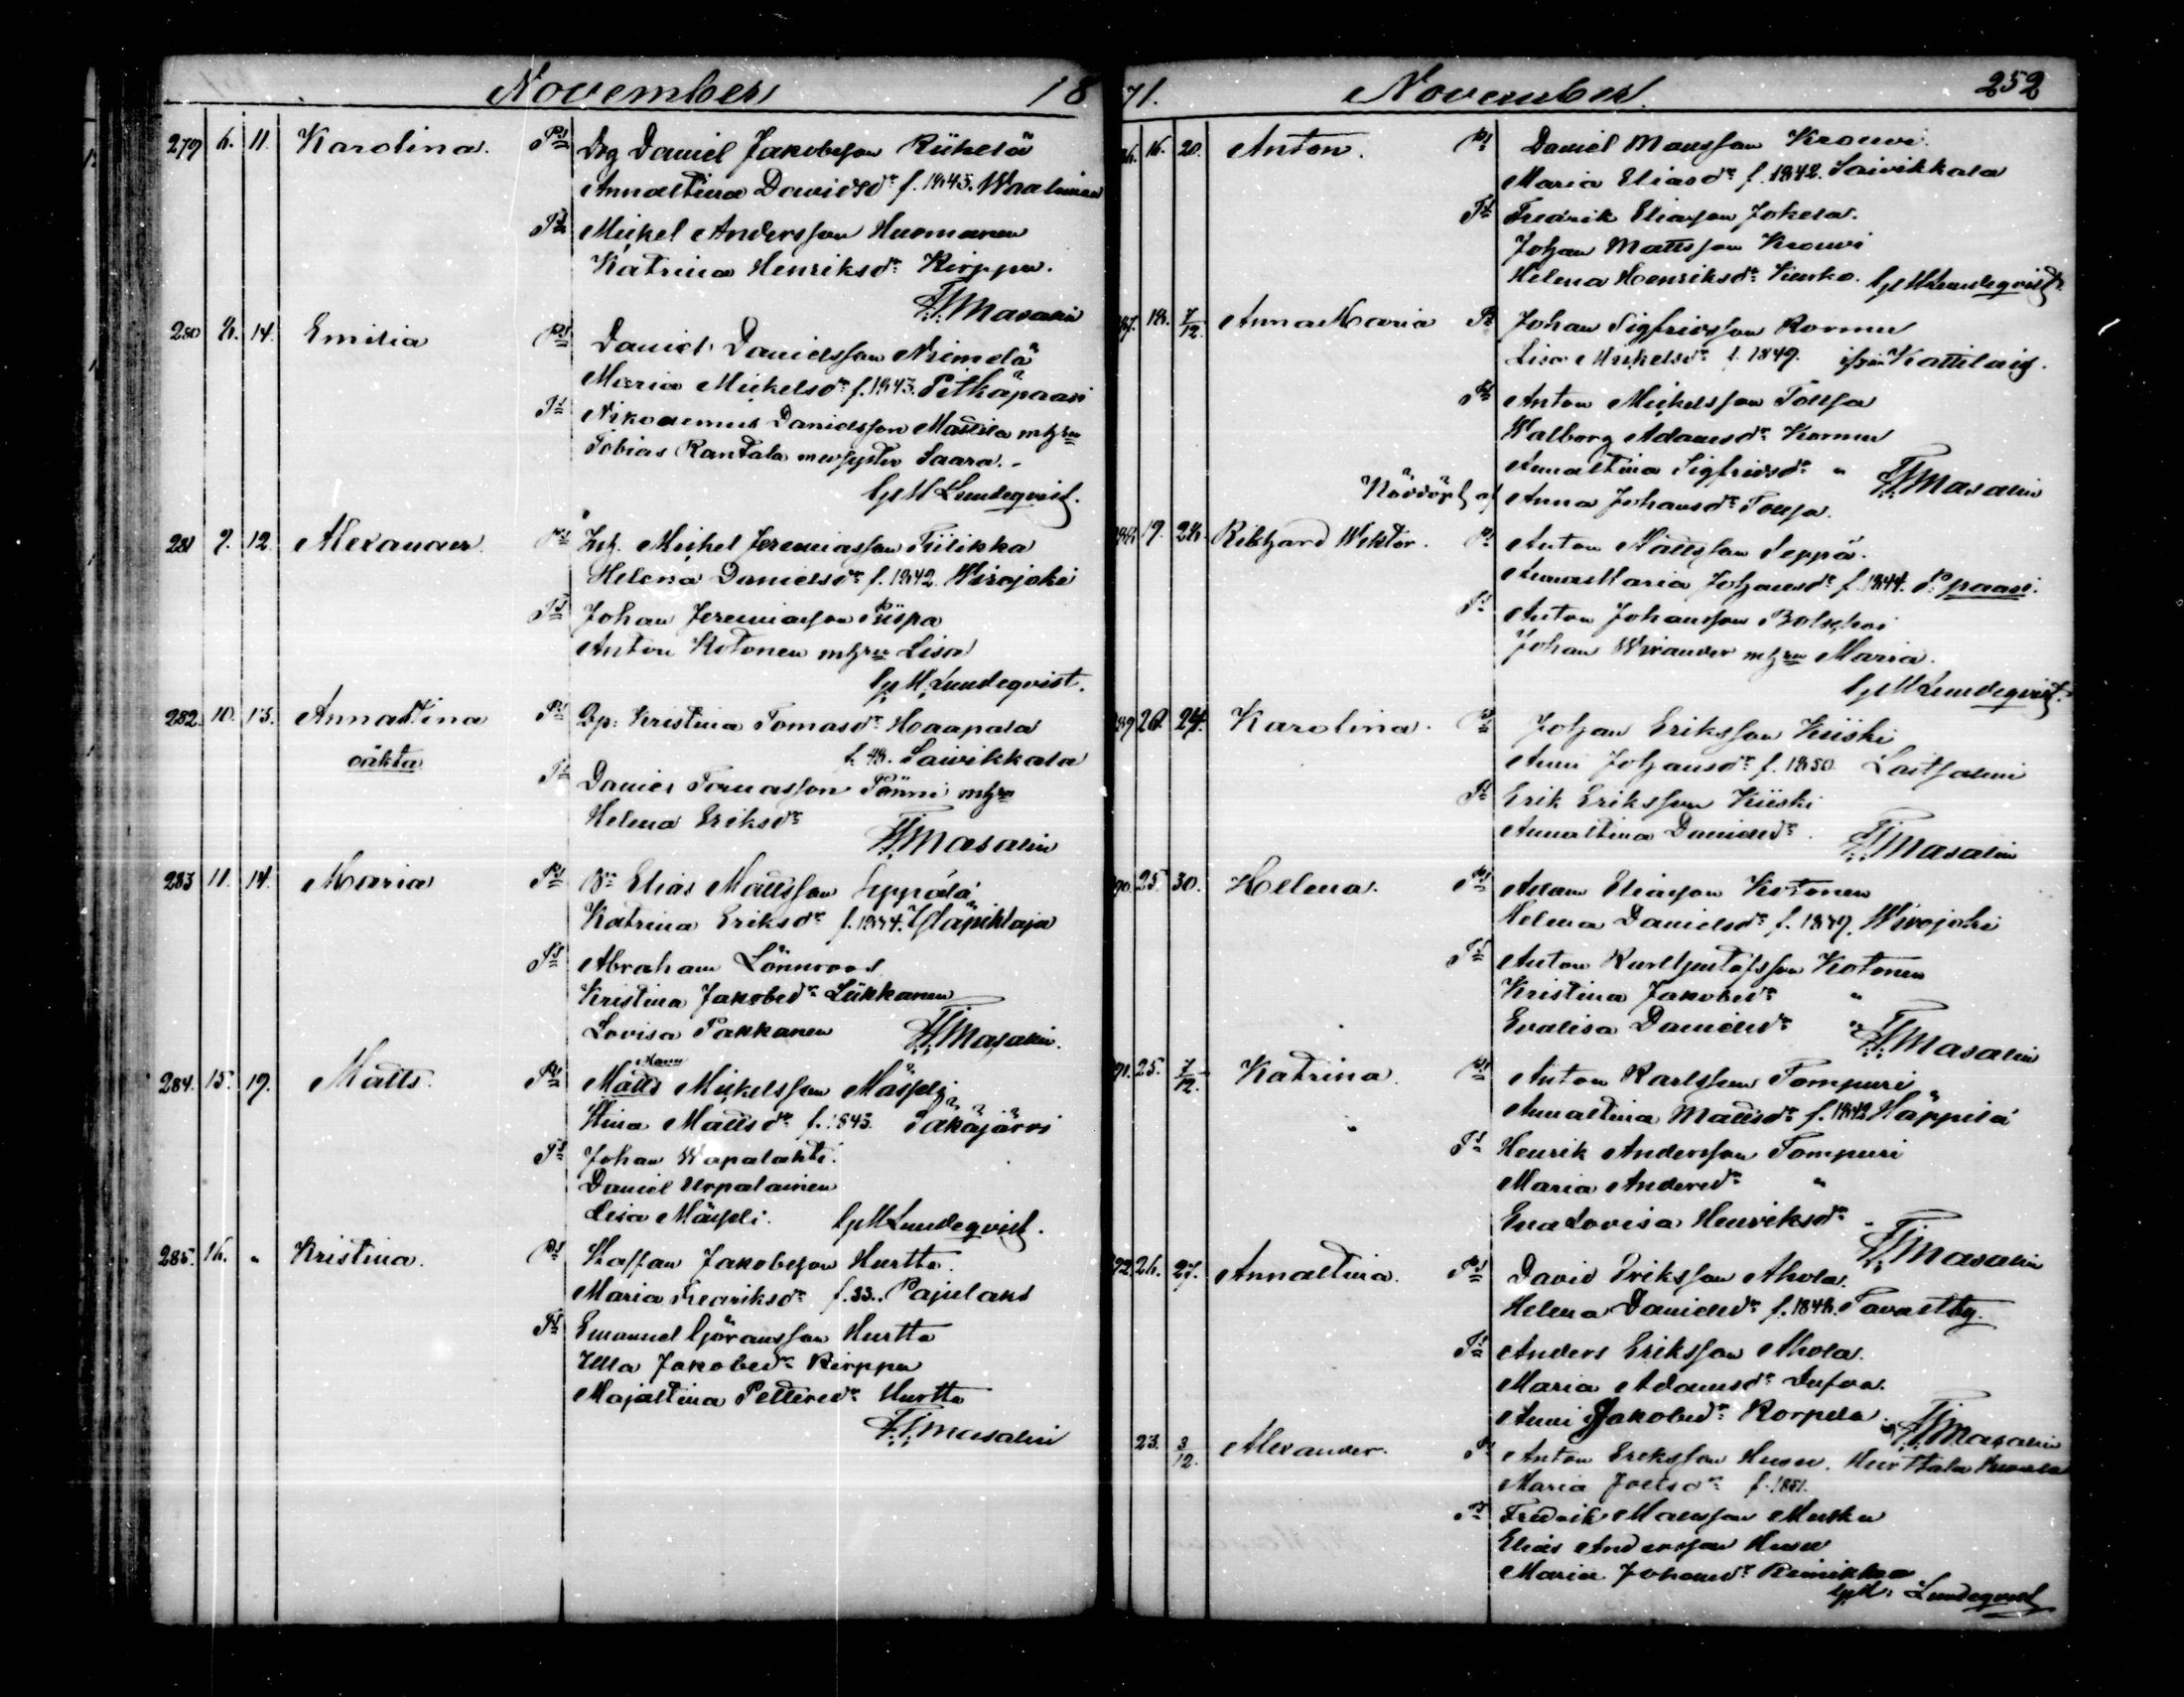 November 18
279 6. 11. Karolina. Drg Daniel Jakobsson Riihelä
Annastina Davidsdr f. 1845.
Mickel Andersson Huomanen
Katrina Henriksdr Kirppu.
Masalin
280 14. Emilia Daniel Danielsson Niemelä
Maria Mickelsdr f. 1843. Pitkäpaasi
Nikodemus Danielsson Mattila mhru
Tobias Rantala med syster Saara.
Lundeqvist.
281 12. Alexander Mickel Jeremiasson Tiilikka
Helena Danielsdr f. 1842. Wirojoki
Johan Jeremiasson Piispa
Anton Kotonen mhru Lisa
Lundeqvist.
282. 10. 13. Annastina Kristina Tomasdr Haapala
oäkta f. 48. Saivikkala
Daniel Tomasson Pönni mhru
Helena Eriksdr
Masalin
283 11. 14. Maria Elias Mattsson Seppälä
Katrina Eriksdr f. 1844. Yläpihlaja
Abraham Lönnroos
Kristina Jakobsdr Liikkanen
Lovisa Pakkanen Masalin.
284. 15. 19. Matts Matts Mickelsson Mässeli
Stina Mattsdr f. 1843. Säkäjärvi
Johan Wapalahti.
Daniel Urpalainen
Lisa Mässeli. Lundeqvist.
285. 16. " Kristina. Staffan Jakobsson Hurtta.
Maria Fredriksdr f. 33. Pajulaks
Emanuel Göransson Hurtta
Ulla Jakobsdr Kirppu
Majastina Pettersdr Hurtta
Masalin
71. November. 252
16. 20. Anton. Daniel Mansson Krouvi.
Maria Eliasdr f. 1842. Saivikkala
Fredrik Eliasson Jokela.
Johan Mattsson Krouvi
Helena Henriksdr Lundeqvist.
18. 7/12. Anna Maria Johan Sigfridsson Kormu
Lisa Mickelsdr f. 1849. ifrån Kattilaig.
Anton Mickelsson Tousa
Walborg Adamsdr Kormu
Annastina Sigfridsdr " Masalin
Nöddöpt af Anna Johansdr Tousa.
19. 26. Rikhard Wiktor. Anton Mattsson Seppä.
Anna Maria Johansdr f. 1844. P:paasi.
Anton Johansson
Johan Wirander mhru Maria.
Lundeqvist.
24. Karolina. Johan Eriksson Kiiski
Anni Johansdr f. 1850. Laitsalmi
Erik Eriksson Kiiski
Annastina Danielsdr. Masalin
25. 30. Helena. Adam Eliasson Kotonen
Helena Danielsdr f. 1849. Wirojoki
Anton Karl Gustafsson Kotonen
Kristina Jakobsdr "
Evalisa Danielsdr " Masalin
25. 7/12. Katrina. Anton Karlsson Tompuri
Annastina Mattsdr f. 1842 Häppilä
Henrik Andersson Tompuri
Maria Andersdr "
Eva Lovisa Henriksdr " Masalin
26. 27. Annastina. David Eriksson Ahola.
Helena Danielsdr f. 1848. Tavastby.
Anders Eriksson Ahola.
Maria Adamsdr
Anni Jakobsdr Korpela. Masalin
23. 3/12. Alexander. Anton Eriksson Husu. Hurttala
Maria Joelsdr f. 1851.
Fredrik Matsson Musku
Elias Andersson Husu
Maria Johansdr Reinikka
Lundeqvist